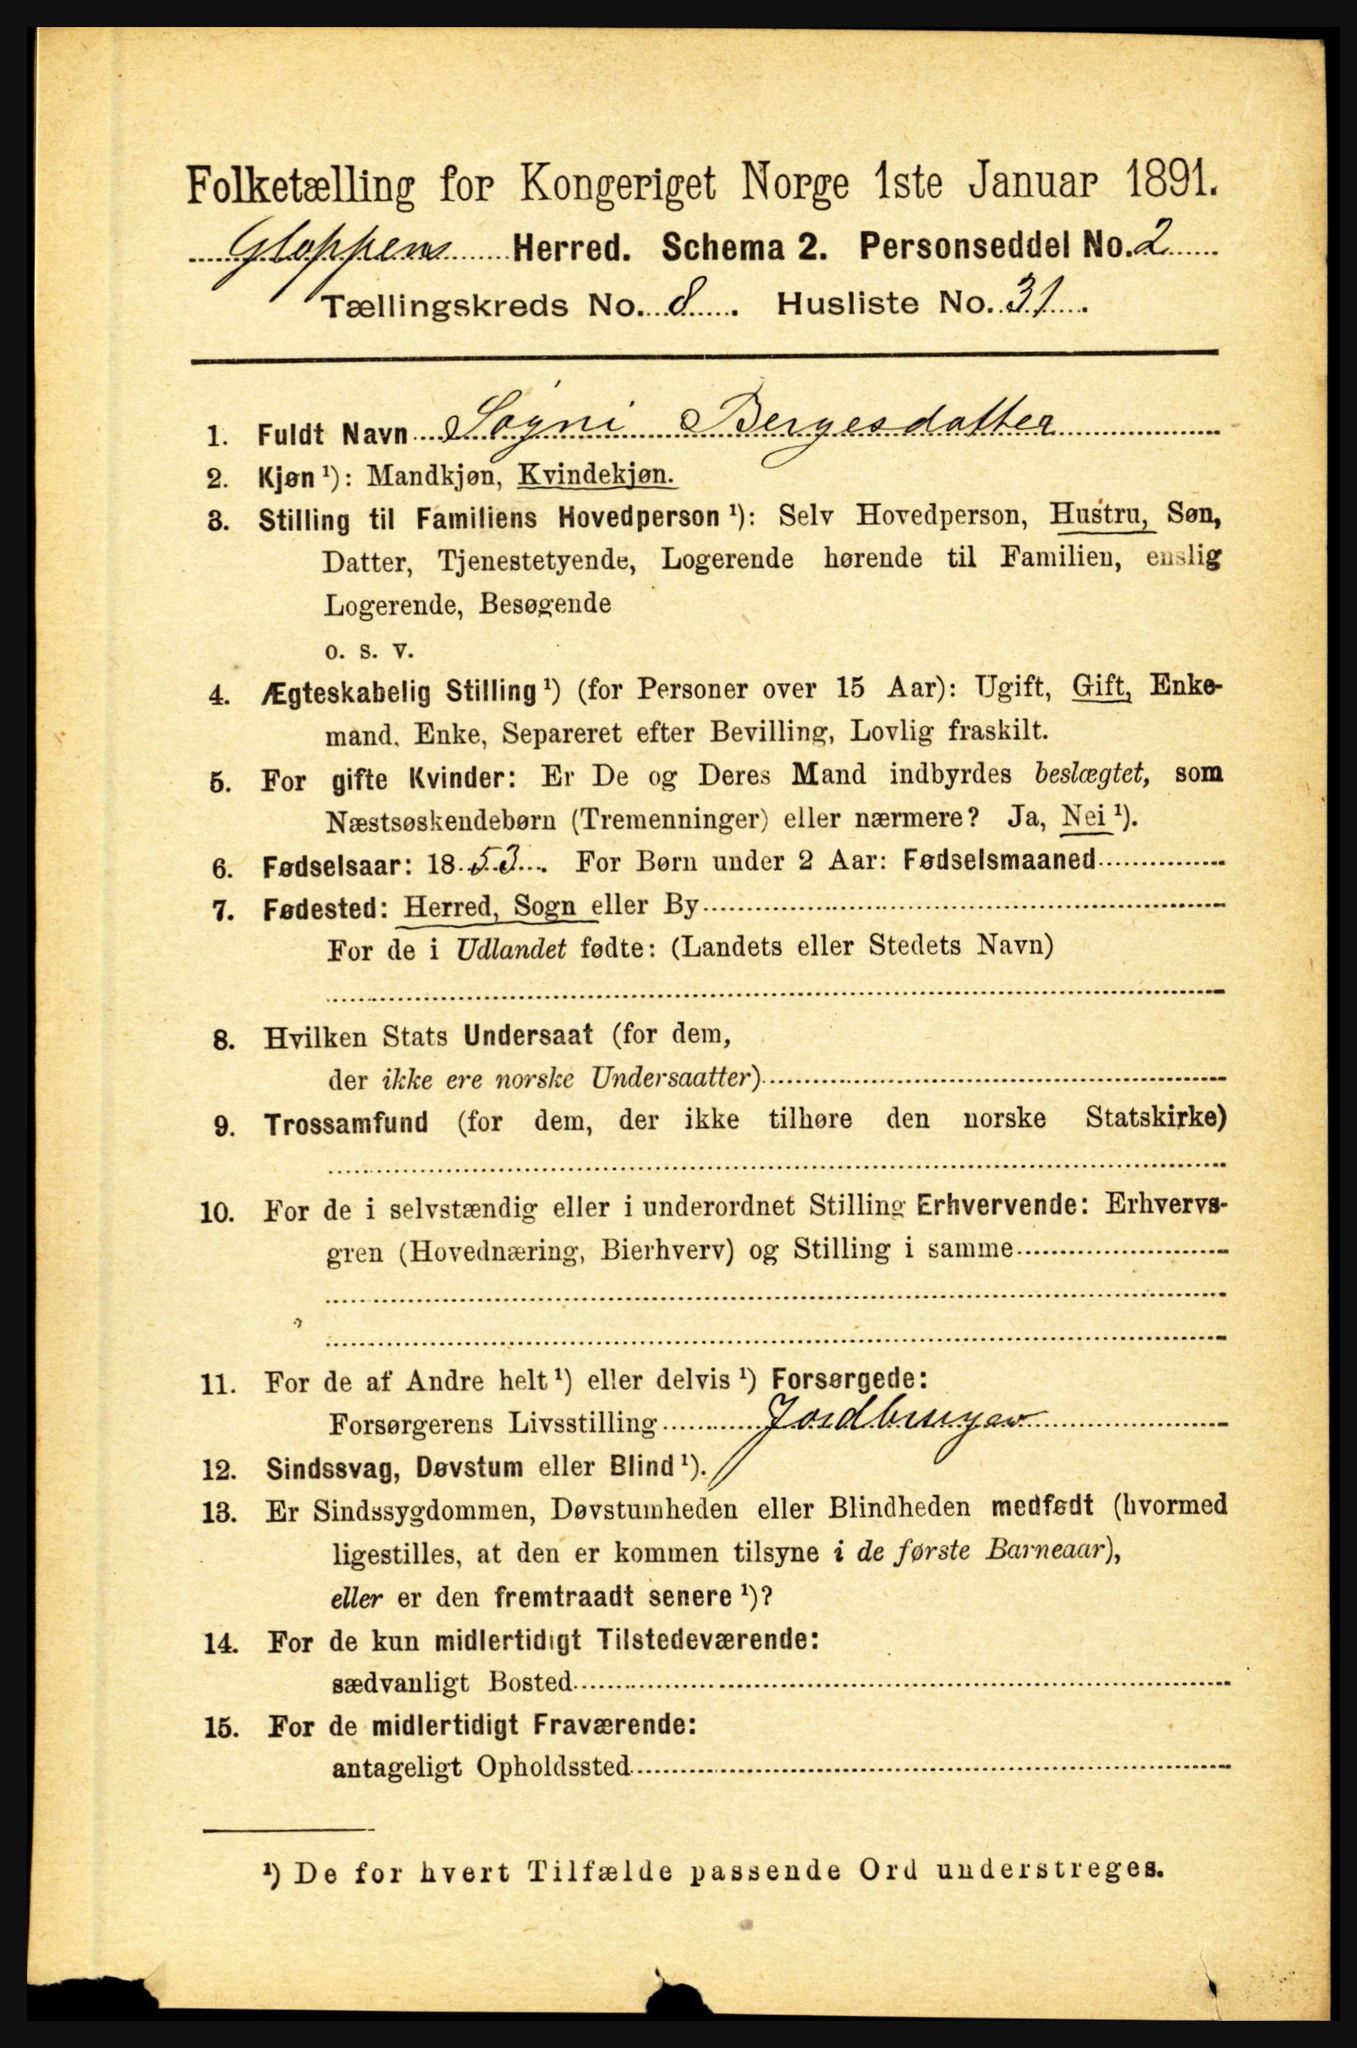 Folketælling for Kongeriget Norge 1ste Januar 1891.
Gloppens Herred. Schema 2. Personseddel No. 2
Tællingskreds No. 8. Husliste No. 31.
1. Fuldt Navn Søgni Bergesdatter
2. Kjøn ¹): Mandkjøn, Kvindekjøn.
3. Stilling til Familiens Hovedperson ¹): Selv Hovedperson, Hustru, Søn,
Datter, Tjenestetyende, Logerende hørende til Familien, enslig
Logerende, Besøgende
o. s. v.
4. Ægteskabelig Stilling ¹) (for Personer over 15 Aar): Ugift, Gift, Enke-
mand, Enke, Separeret efter Bevilling, Lovlig fraskilt.
5. For gifte Kvinder: Er De og Deres Mand indbyrdes beslægtet, som
Næstsøskendebørn (Tremenninger) eller nærmere? Ja, Nei ¹).
6. Fødselsaar: 1853. For Børn under 2 Aar: Fødselsmaaned
7. Fødested: Herred, Sogn eller By
For de i Udlandet fødte: (Landets eller Stedets Navn)
8. Hvilken Stats Undersaat (for dem,
der ikke ere norske Undersaatter)
9. Trossamfund (for dem, der ikke tilhøre den norske Statskirke)
10. For de i selvstændig eller i underordnet Stilling Erhvervende: Erhvervs-
gren (Hovednæring, Bierhverv) og Stilling i samme
11. For de af Andre helt ¹) eller delvis ¹) Forsørgede:
Forsørgerens Livsstilling Jordbruger
12. Sindssvag, Døvstum eller Blind ¹).
13. Er Sindssygdommen, Døvstumheden eller Blindheden medfødt (hvormed
ligestilles, at den er kommen tilsyne i de første Barneaar),
eller er den fremtraadt senere ¹)?
14. For de kun midlertidigt Tilstedeværende:
sædvanligt Bosted
15. For de midlertidigt Fraværende:
antageligt Opholdssted
¹) De for hvert Tilfælde passende Ord understreges.